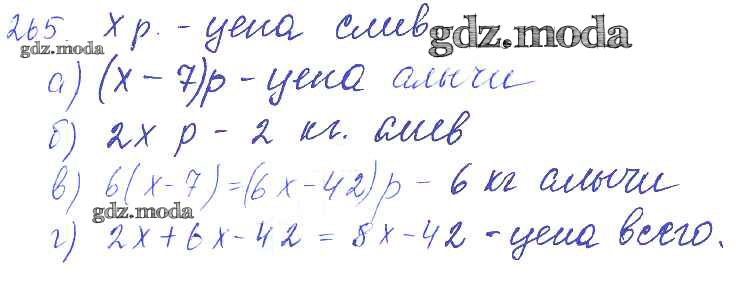 265. х р. - цена слив
gdz.moda gdz.moda
а) (х - 7)р - цена алычи
б) 2х р - 2 кг. слив
в) 6(х-7)=(6х-42)р - 6 кг алычи
gdz.moda
г) 2х+6х-42 = 8х-42 - цена всего.